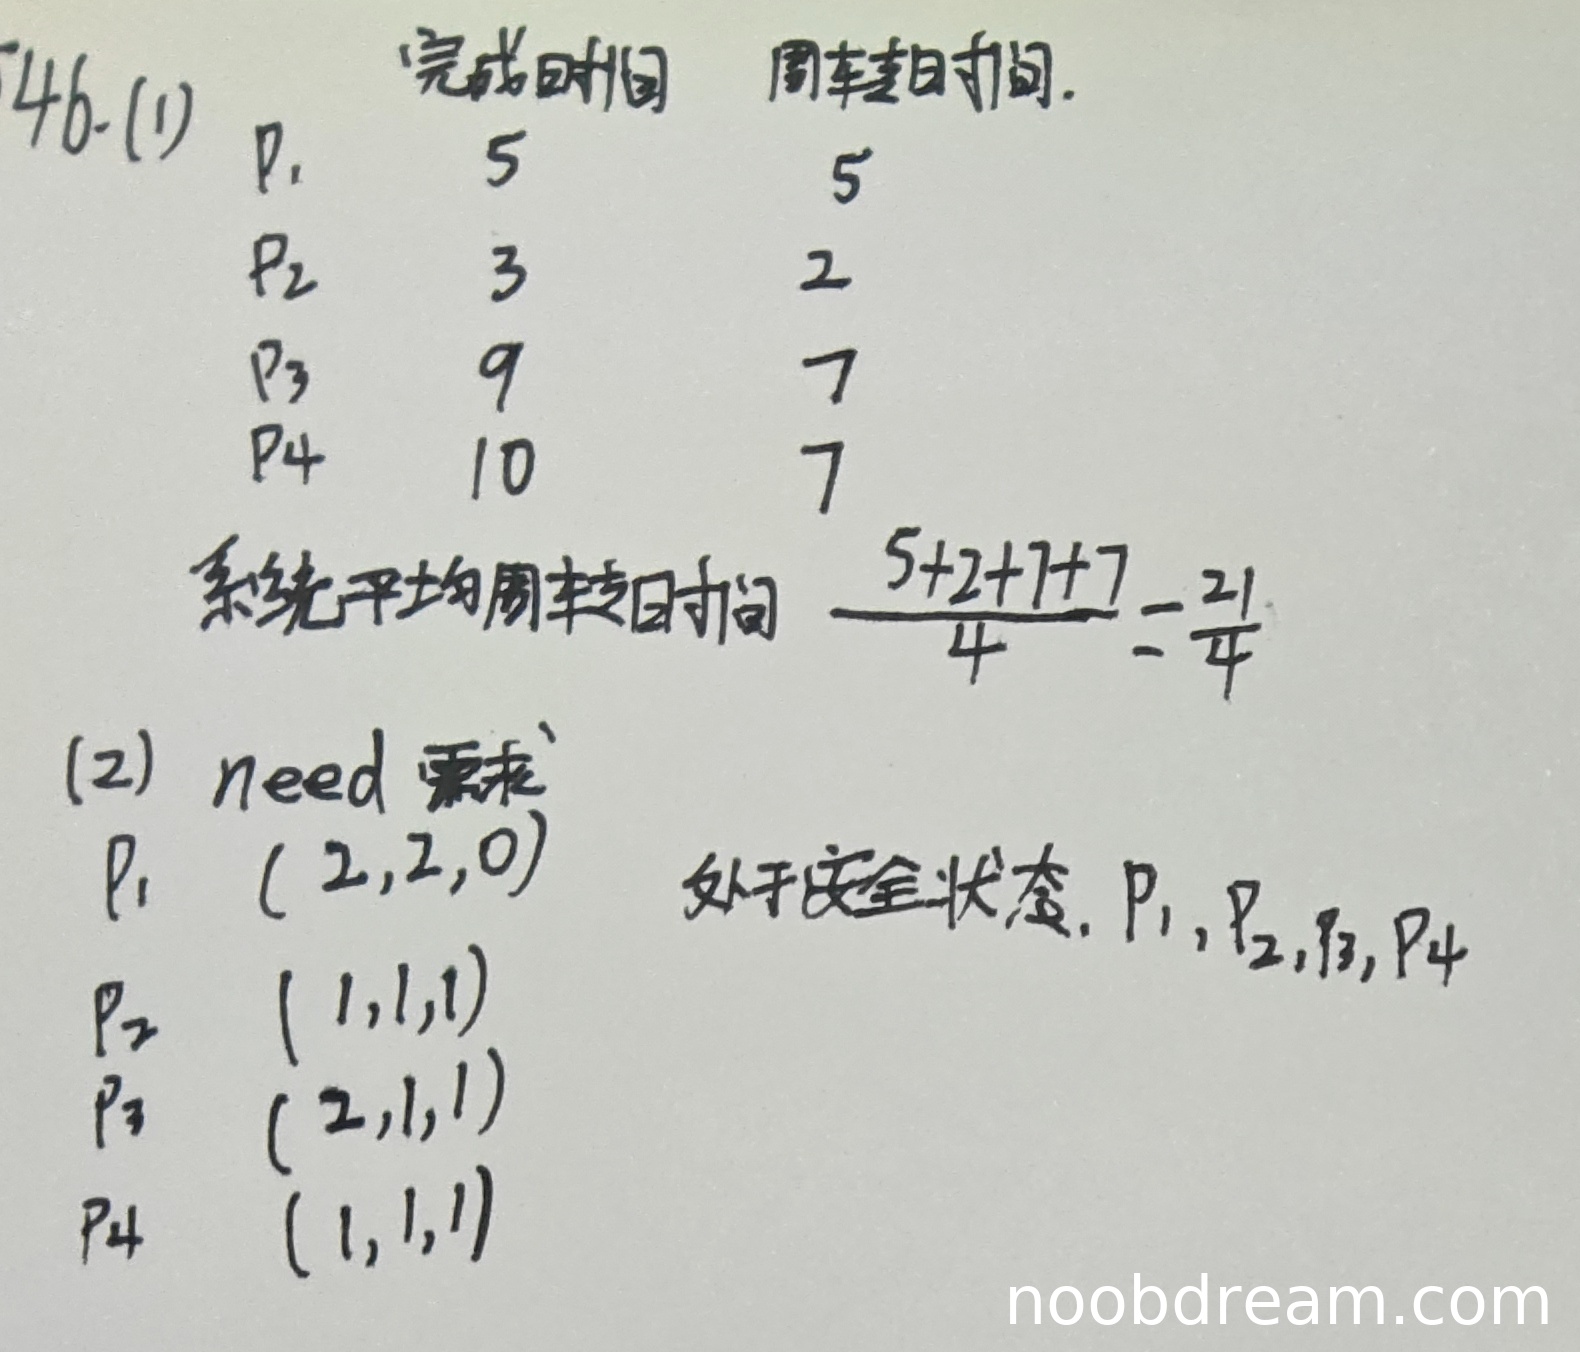 46.(1) 完成时间 周转时间.
P1 5 5
P2 3 2
P3 9 7
P4 10 7
系统平均周转时间 (5+2+7+7)/4 = 21/4
(2) need 需求
P1 (2,2,0)
处于安全状态. P1, P2, P3, P4
P2 (1,1,1)
P3 (2,1,1)
P4 (1,1,1)
noobdream.com